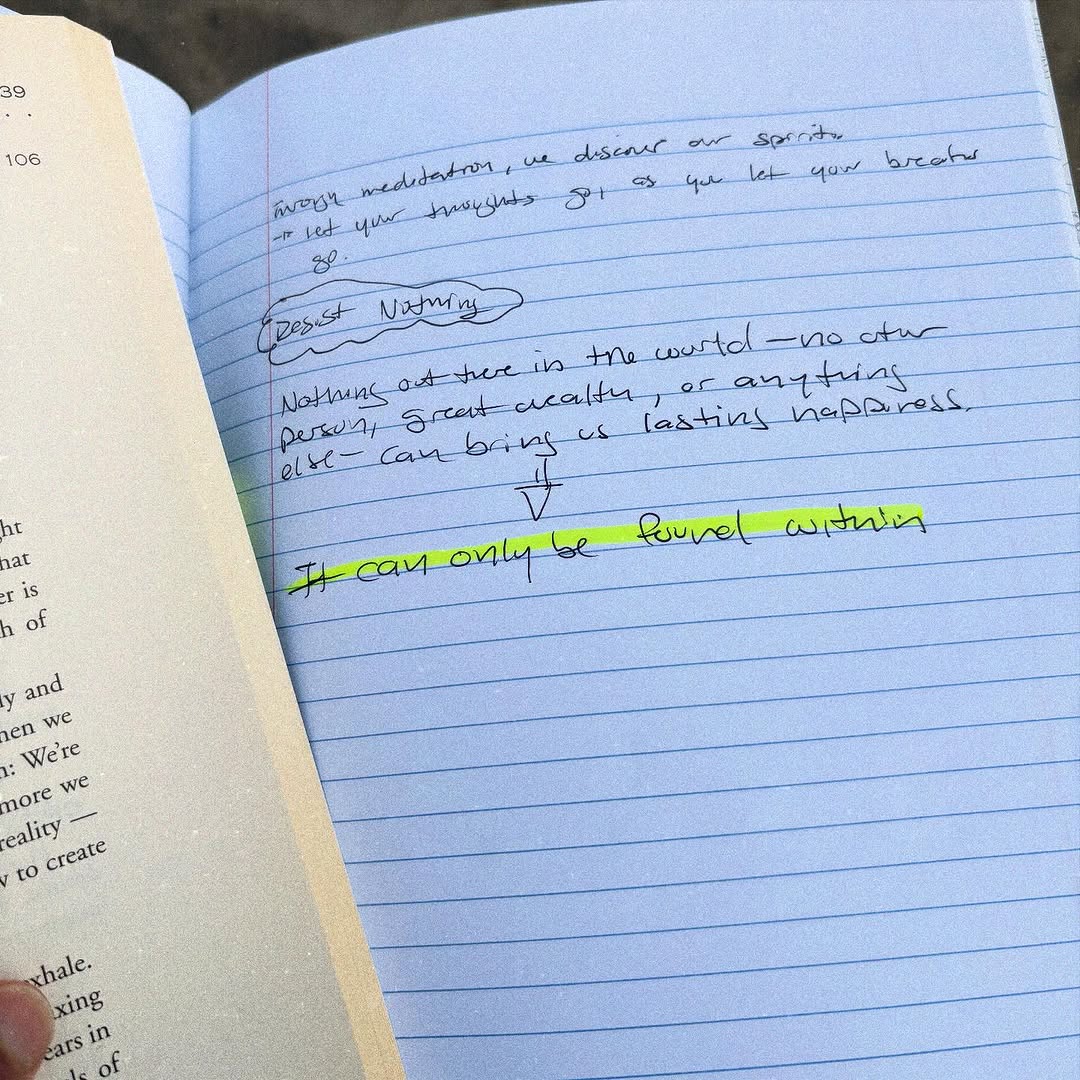 39
. .
106
ght
hat
er is
h of
ly and
hen we
n: We're
more we
reality —
w to create
xhale.
xing
ears in
ls of
through meditation, we discover our spirits.
→ let your thoughts go, as you let your breaths
go.
Resist Nothing
Nothing out there in the world — no other
person, great wealth, or anything
else — can bring us lasting happiness.
It can only be found within